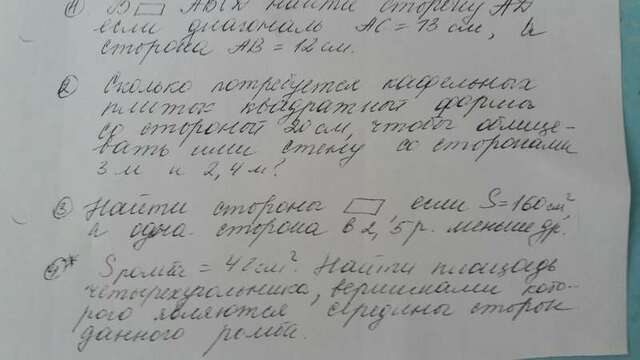 1) В ▭ АВСД найти сторону АД
если диагональ АС = 13 см, а
сторона АВ = 12 см.
2) Сколько потребуется кафельных
плиток квадратной формы
со стороной 20 см, чтобы облице-
вать ими стену со сторонами
3 м и 2,4 м?
3) Найти стороны ▭, если S=160 см²,
а одна сторона в 2,5 р. меньше др.
4)* S ромба = 48 см². Найти площадь
четырехугольника, вершинами кото-
рого являются середины сторон
данного ромба.